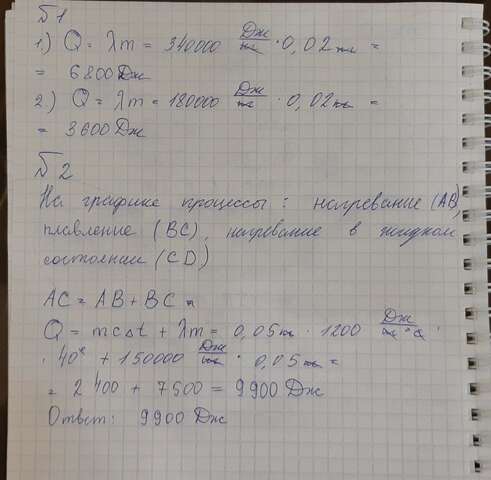 №1
1) Q = λm = 340000 Дж/кг · 0,02 кг =
= 6800 Дж
2) Q = λm = 180000 Дж/кг · 0,02 кг =
= 3600 Дж
№2
На графике процессы: нагревание (AB),
плавление (BC), нагревание в жидком
состоянии (CD)
AC = AB + BC =
Q = mcΔt + λm = 0,05 кг · 1200 Дж/кг °C ·
· 40° + 150000 Дж/кг · 0,05 кг =
= 2400 + 7500 = 9900 Дж
Ответ: 9900 Дж